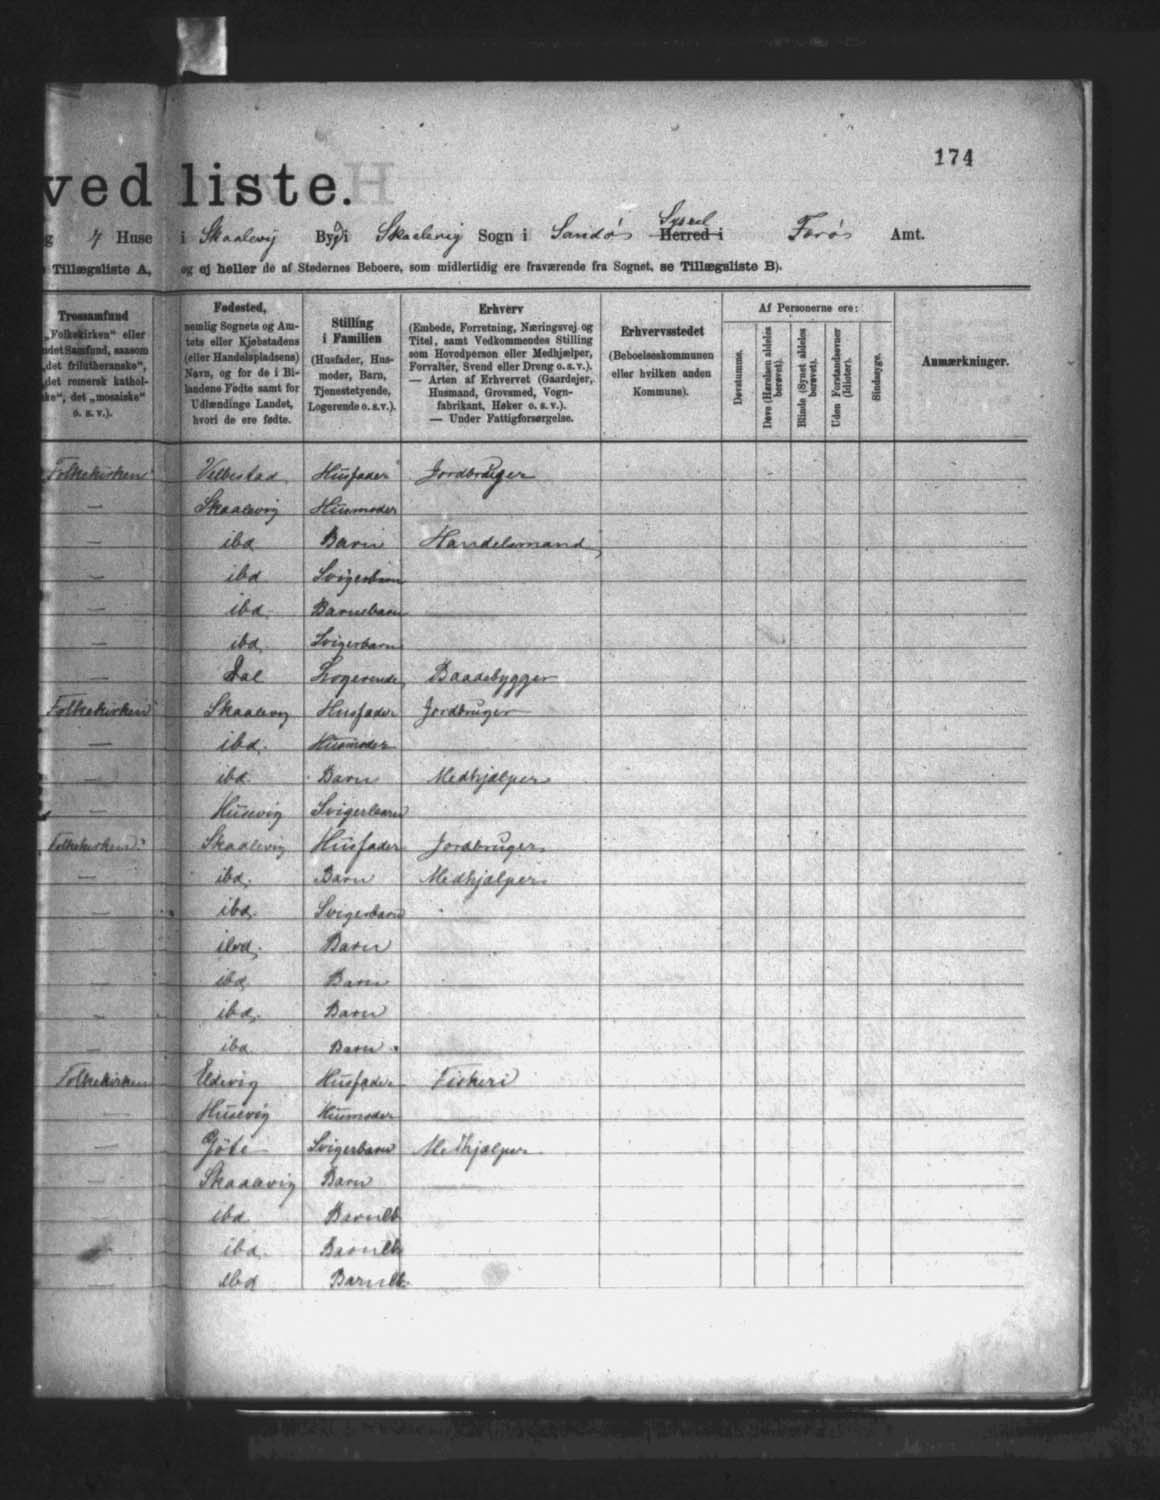 174
ved liste.
g 4 Huse i Skaalevig By i Skaalevig Sogn i Sandø Syssel Herred i Færø Amt.
Tillægsliste A, og ej heller de af Stedernes Beboere, som midlertidig ere fraværende fra Sognet, se Tillægsliste B).
Trossamfund
„Folkekirken“ eller
ndet Samfund, saasom
„det frilutheranske“,
„det romersk kathol-
ke“, det „mosaiske“
o. s. v.).
Fødested,
nemlig Sognets og Am-
tets eller Kjøbstadens
(eller Handelspladsens)
Navn, og for de i Bi-
landene Fødte samt for
Udlændinge Landet,
hvori de ere fødte.
Stilling
i Familien
(Husfader, Hus-
moder, Barn,
Tjenestetyende,
Logerende o. s. v.).
Erhverv
(Embede, Forretning, Næringsvej og
Titel, samt Vedkommendes Stilling
som Hovedperson eller Medhjælper,
Forvalter, Svend eller Dreng o. s. v.).
— Arten af Erhvervet (Gaardejer,
Husmand, Grovsmed, Vogn-
fabrikant, Høker o. s. v.).
— Under Fattigforsørgelse.
Erhvervsstedet
(Beboelseskommunen
eller hvilken anden
Kommune).
Af Personerne ere:
Døvstumme.
Døve (Hørelsen aldeles
berøvet).
Blinde (Synet aldeles
berøvet).
Uden Forstandsevner
(Idioter).
Sindssyge.
Anmærkninger.
Folkekirken Velbestad Husfader Jordbruger
— Skaalevig Husmoder
— ibd Barn Handelsmand
— ibd Svigerbarn
— ibd. Barnebarn
— ibd. Svigerbarn
— Dal Logerende Baadebygger
Folkekirken Skaalevig Husfader Jordbruger
— ibd. Husmoder
— ibd. Barn Medhjælper
— Husevig Svigerbarn
Folkekirken Skaalevig Husfader Jordbruger
— ibd. Barn Medhjælper
— ibd. Svigerbarn
— ibd. Barn
— ibd Barn
— ibd. Barn
— ibd Barn
Folkekirken Eldevig Husfader Fiskeri
— Husevig Husmoder
— Gøte Svigerbarn Medhjælper
— Skaalevig Barn
— ibd Barneb
— ibd. Barneb
— ibd Barneb